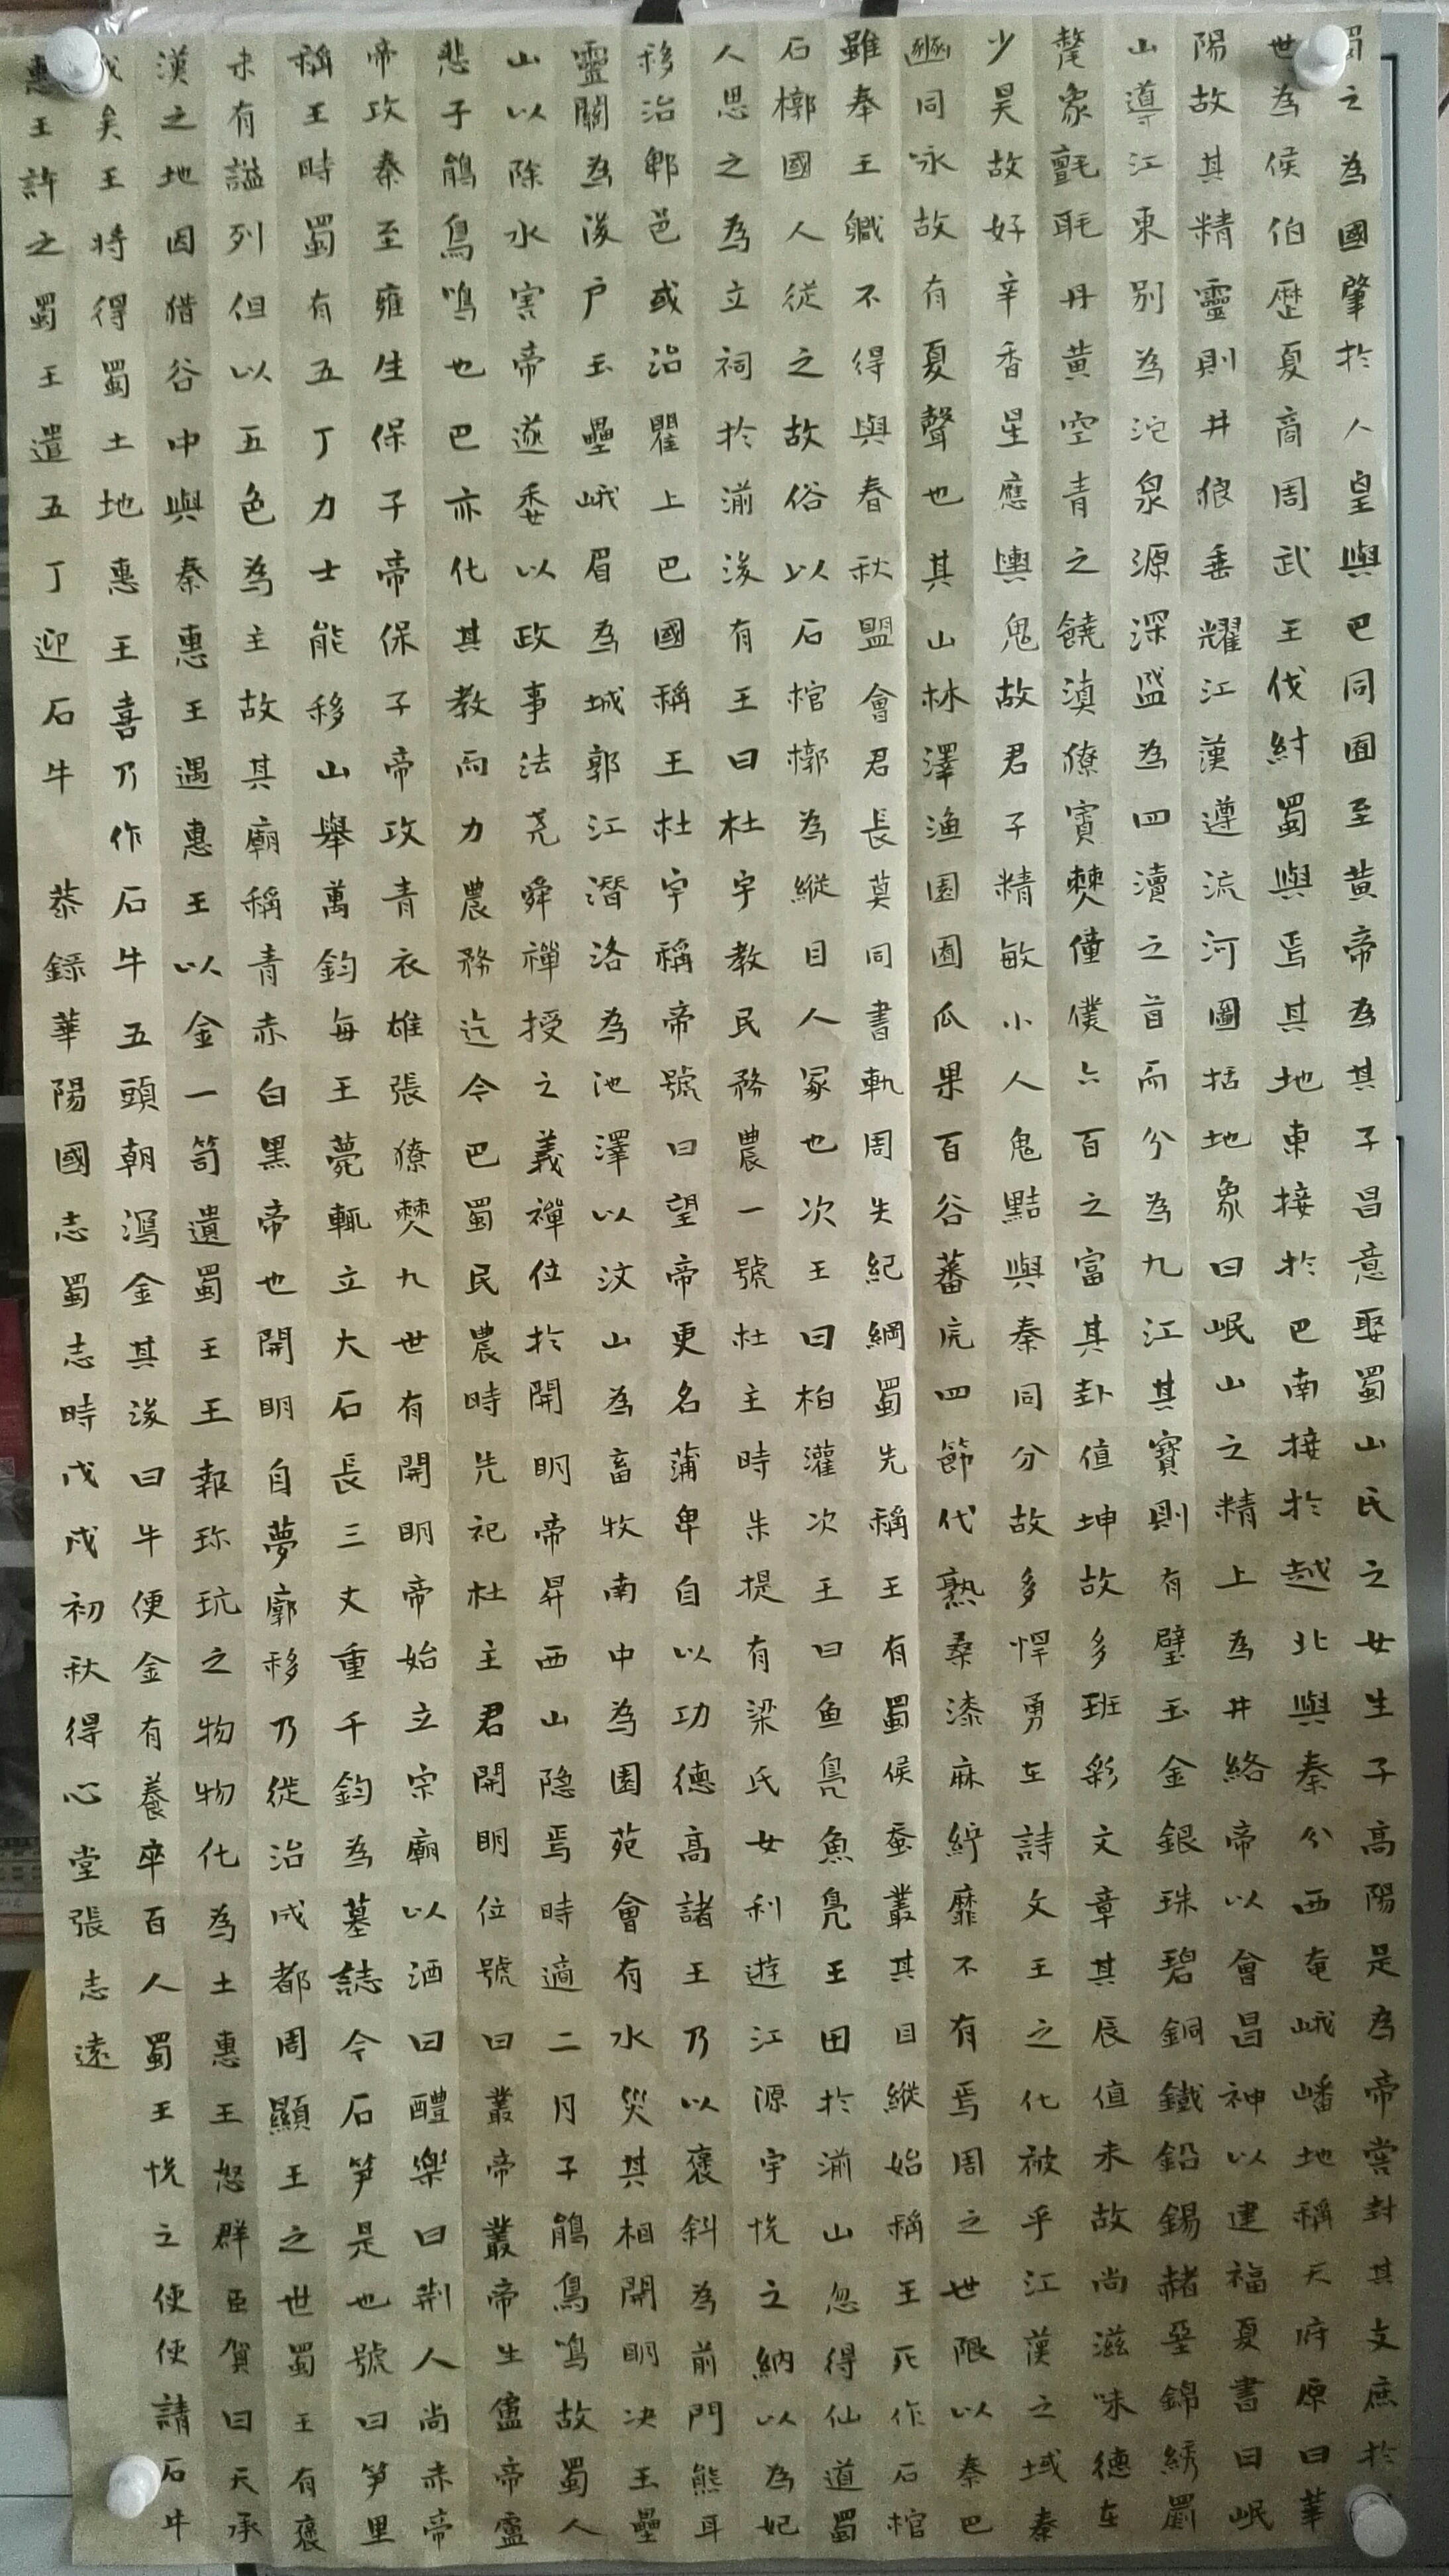 蜀之為國肇於人皇與巴同囿至黃帝為其子昌意娶蜀山氏之女生子高陽是為帝嘗封其支庶於
世為侯伯歷夏商周武王伐紂蜀與焉其地東接於巴南接於越北與秦分西奄峨嶓地稱天府原曰華
陽故其精靈則井狼垂耀江漢遵流河圖括地象曰岷山之精上為井絡帝以會昌神以建福夏書曰岷
山導江東別為沱泉源深盛為四瀆之首而分為九江其寶則有璧玉金銀珠碧銅鐵鉛錫赭堊錦綉罽
氂象氈毦丹黃空青之饒滇僚賨僰僮僕六百之富其卦值坤故多班彩文章其辰值未故尚滋味德在
少昊故好辛香星應輿鬼故君子精敏小人鬼黠與秦同分故多悍勇在詩文王之化被乎江漢之域秦
豳同咏故有夏聲也其山林澤漁園囿瓜果百谷蕃庑四節代熟桑漆麻紵靡不有焉周之世限以秦巴
雖奉王職不得與春秋盟會君長莫同書軌周失紀綱蜀先稱王有蜀侯蚕叢其目縱始稱王死作石棺
石槨國人從之故俗以石棺槨為縱目人冢也次王曰柏灌次王曰鱼鳧魚鳧王田於湔山忽得仙道蜀
人思之為立祠於湔後有王曰杜宇教民務農一號杜主時朱提有梁氏女利遊江源宇悅之納以為妃
移治郫邑或治瞿上巴國稱王杜宇稱帝號曰望帝更名蒲卑自以功德高諸王乃以褒斜為前門熊耳
靈關為後户玉壘峨眉為城郭江潛洛為池澤以汶山為畜牧南中為園苑會有水災其相開明决玉壘
山以除水害帝遂委以政事法尧舜禪授之義禪位於開明帝昇西山隐焉時適二月子鵑鳥鳴故蜀人
悲子鵑鳥鳴也巴亦化其教而力農務迄今巴蜀民農時先祀杜主君開明位號曰叢帝叢帝生盧帝盧
帝攻秦至雍生保子帝保子帝攻青衣雄張僚僰九世有開明帝始立宗廟以酒曰醴樂曰荆人尚赤帝
稱王時蜀有五丁力士能移山舉萬鈞每王薨輒立大石長三丈重千鈞為墓誌今石笋是也號曰笋里
未有謚列但以五色為主故其廟稱青赤白黑帝也開明自夢廓移乃徙治成都周顯王之世蜀王有褒
漢之地因猎谷中與秦惠王遇惠王以金一笥遺蜀王王報珍玩之物物化為土惠王怒群臣賀曰天承
我矣王將得蜀土地惠王喜乃作石牛五頭朝瀉金其後曰牛便金有養卒百人蜀王悅之使使請石牛
惠王許之蜀王遣五丁迎石牛 恭錄華陽國志蜀志時戊戌初秋得心堂張志遠